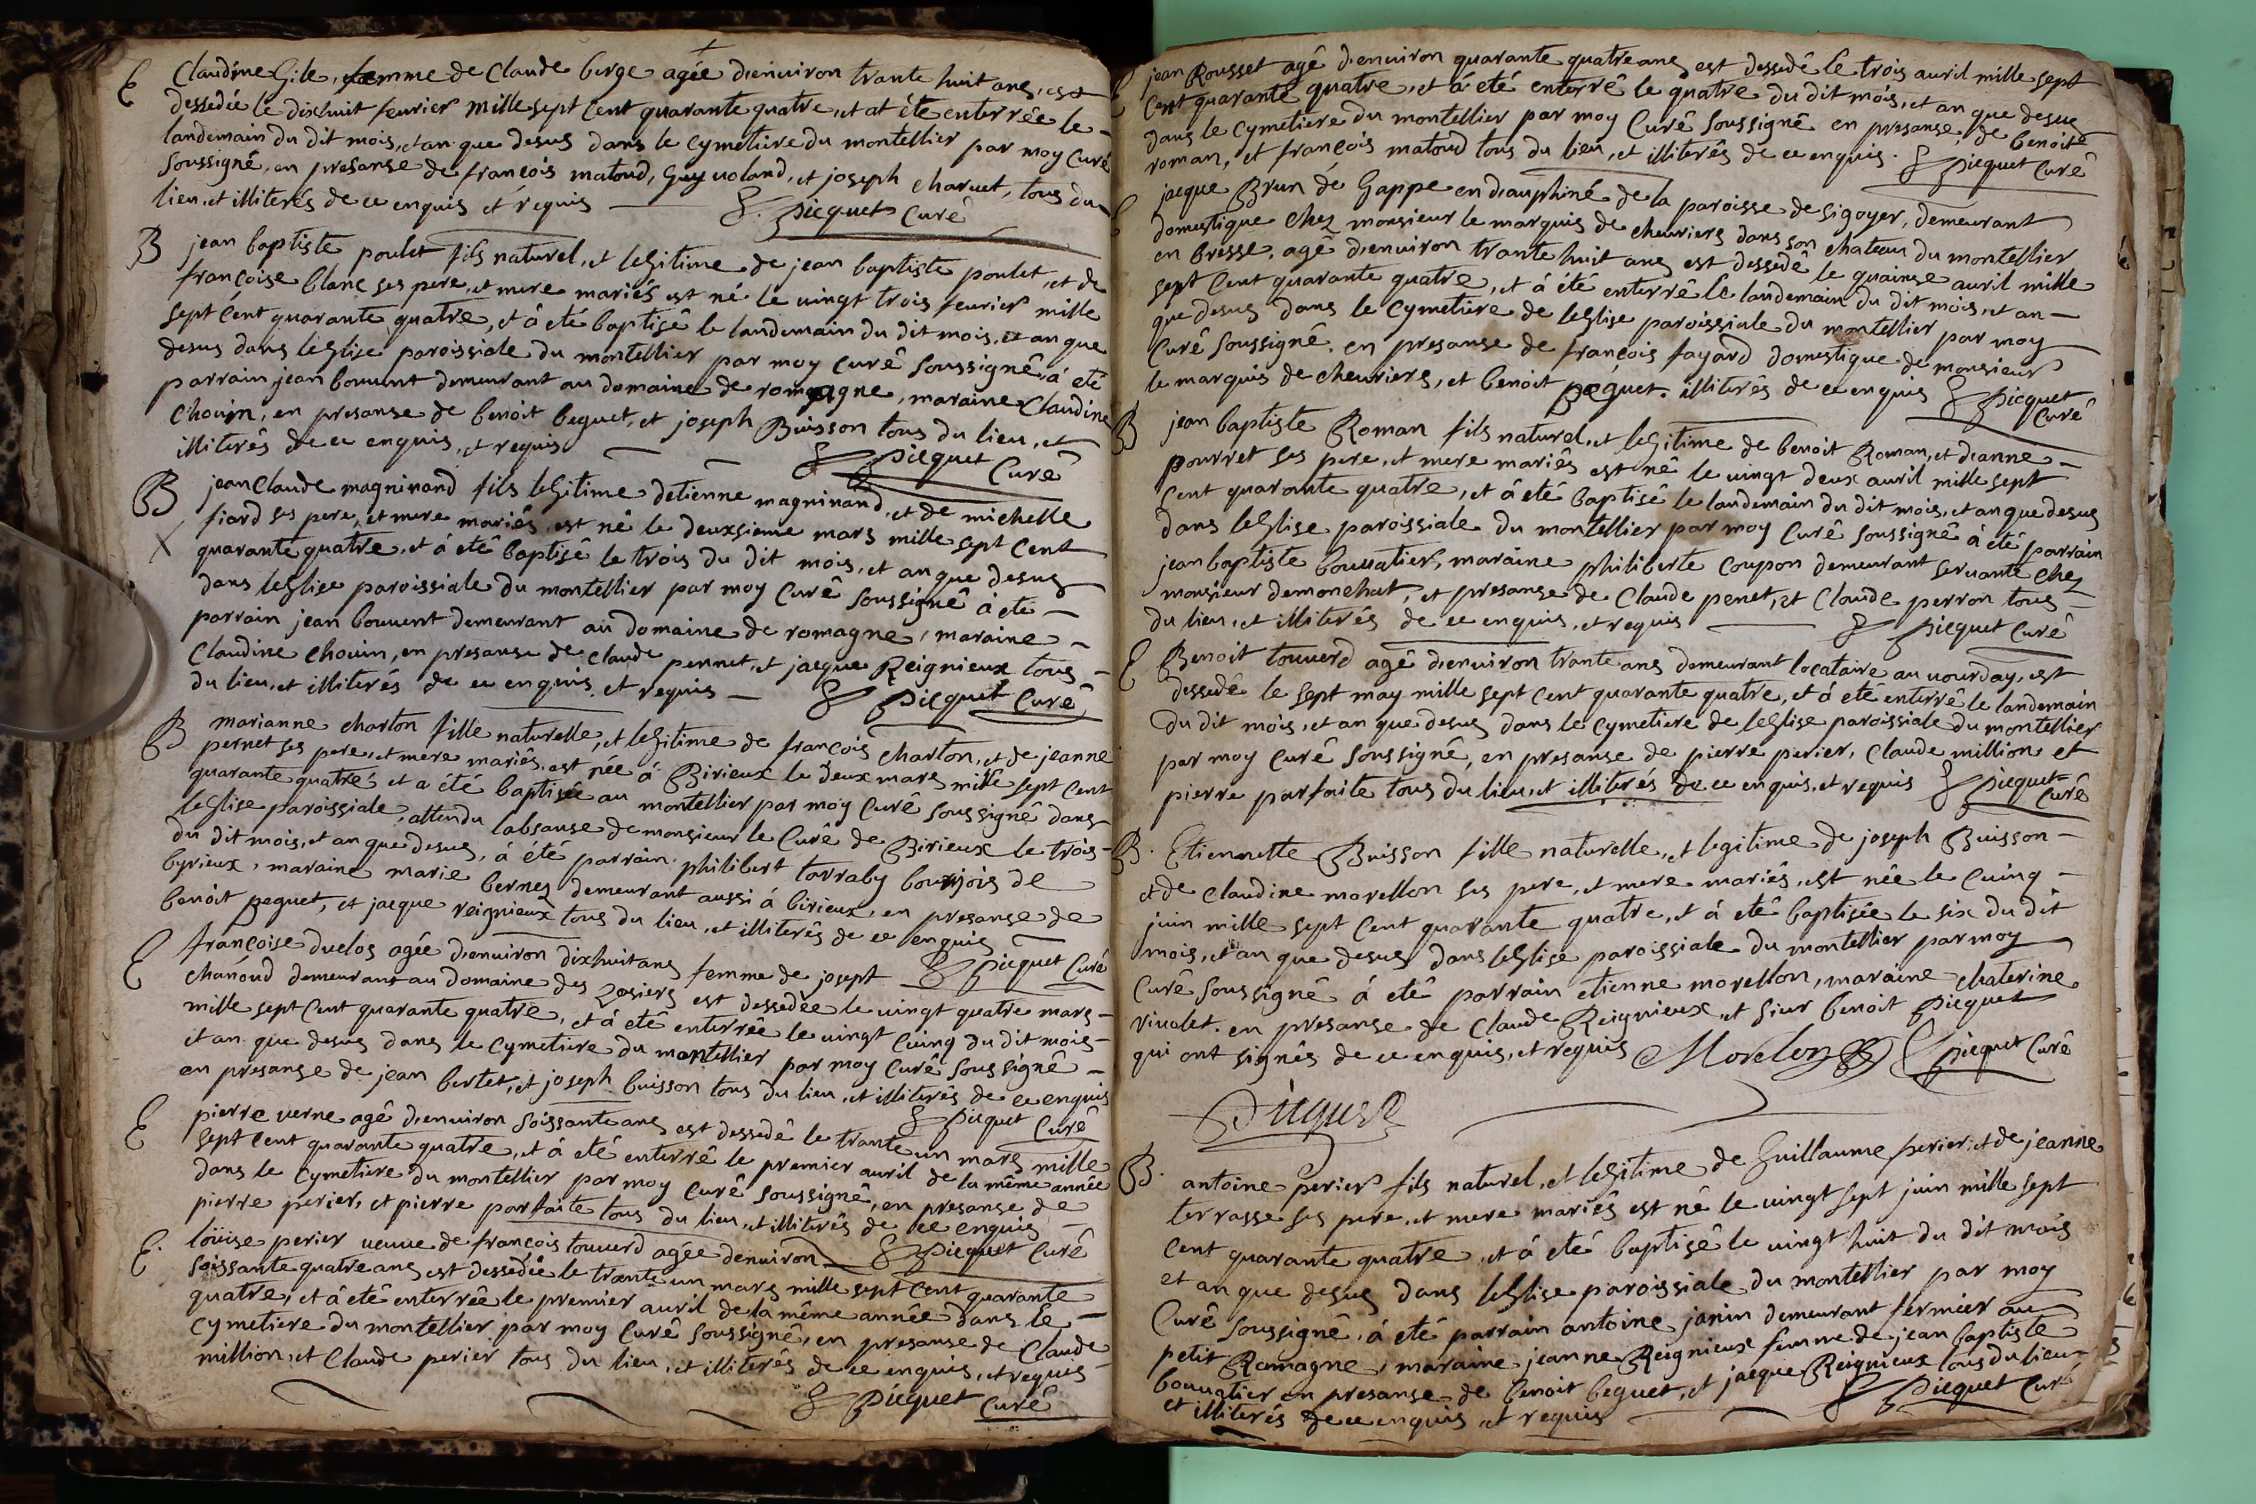 E Claudine Gile, femme de Claude berge agée denuiron trante huit ans, est
dessedée le dixhuit feurier mille sept Cent quarante quatre, et at été enterrée le
landemain du dit mois, et an que desus dans le Cymetiere du montellier par moy Curé
soussigné, en presanse de françois matoud, Guy uoland, et joseph charuet, tous du
lieu, et illiterés de ce enquis et requis
Picquet Curé
B jean baptiste poulet fils naturel, et legitime de jean baptiste poulet, et de
françoise blanc ses pere, et mere mariés est né le uingt trois feurier mille
sept Cent quarante quatre, et á eté baptisé le landemain du dit mois, et an que
desus dans leglise paroissiale du montellier par moy Curé soussigné, á eté
parrain jean bouuent demeurant au domaine de romagne, maraine Claudine
Chouin, en presanse de benoit beguet, et joseph Buisson tous du lieu, et
illiterés de ce enquis, et requis
Picquet Curé
B jean Claude magninand fils legitime detienne magninand, et de michelle
fiard ses pere, et mere mariés est né le deuxsieme mars mille sept Cent
quarante quatre, et á eté baptisé le trois du dit mois, et an que desus
dans leglise paroissiale du montellier par moy Curé soussigné á eté
parrain jean bouuent demeurant au domaine de romagne, maraine
Claudine Chouin, en presanse de Claude pernet, et jaeque Reignieux tous
du lieu, et illiterés de ce enquis et requis
Picquet Curé
B marianne charton fille naturelle, et legitime de françois charton, et de jeanne
pernet ses pere, et mere mariés, est née á Birieux le deux mars mille sept Cent
quarante quatre, et a été baptisée au montellier par moy Curé soussigné dans
leglise paroissiale, attendu labsanse de monsieur le Curé de Birieux le trois
du dit mois, et an que desus, á été parrain philibert torraby bourjois de
byrieux, maraine marie bernes demeurant aussi á birieux, en presanse de
benoit peguet, et jaeque reignieux tous du lieu, et illiterés de ce enquis
Picquet Curé
E françoise duclos agée denuiron dixhuit ans femme de josept
chanoud demeurant au domaine des Rosiers est dessedée le uingt quatre mars
mille sept Cent quarante quatre, et á eté enterrée le uingt Cuinq du dit mois
et an que desus dans le Cymetiere du montellier par moy Curé soussigné
en presanse de jean bertet, et joseph buisson tous du lieu, et illiterés de ce enquis
Picquet Curé
E pierre uerne agé denuiron soissante ans est dessedé le trante un mars mille
sept Cent quarante quatre, et á eté enterré le premier auril de la même année
dans le Cymetiere du montellier par moy Curé soussigné, en presanse de
pierre perier, et pierre parfaite tous du lieu, et illiterés de ce enquis
Picquet Curé
E loüise perier ueuue de françois touuerd agée denuiron
soissante quatre ans est dessedée le trante un mars mille sept Cent quarante
quatre, et á eté enterrée le premier auril de la même année dans le
Cymetiere du montellier par moy Curé soussigné, en presanse de Claude
million, et Claude perier tous du lieu, et illiterés de ce enquis, et requis
Picquet Curé
E jean Rousset agé denuiron quarante quatre ans est dessedé le trois auril mille sept
Cent quarante quatre, et á eté enterré le quatre du dit mois, et an que desus
dans le Cymetiere du montellier par moy Curé soussigné en presanse de benoit
roman, et françois matoud tous du lieu, et illiterés de ce enquis.
Picquet Curé
E jaeque Brun de Gappe en dauphiné de la paroisse de sigoyer, demeurant
domestique chez monsieur le marquis de cheuriers dans son chateau du montellier
en bresse, agé denuiron trante huit ans est dessedé le quainse auril mille
sept Cent quarante quatre, et á été enterré le landemain du dit mois, et an
que desus dans le Cymetiere de leglise paroissiale du montellier par moy
Curé soussigné, en presanse de françois fayard domestique de monsieur
le marquis de cheuriers, et benoit peguet. illiterés de ce enquis
Picquet Curé
B jean baptiste Roman fils naturel, et legitime de benoit Roman, et dianne
pourret ses pere, et mere mariés est né le uingt deux auril mille sept
Cent quarante quatre, et á eté baptisé le landemain du dit mois, et an que desus
dans leglise paroissiale du montellier par moy Curé soussigné á eté parrain
jean baptiste bouuatier, maraine philiberte coupon demeurant seruante chez
monsieur demonchut, et presanse de Claude penet, et Claude perron tous
du lieu, et illiterés de ce enquis, et requis
Picquet Curé
E Benoit touuerd agé denuiron trante ans demeurant locataire au uourday, est
dessedé le sept may mille sept Cent quarante quatre, et á eté enterré le landemain
du dit mois, et an que desus dans le Cymetiere de leglise paroissiale du montellier
par moy Curé soussigné, en presanse de pierre perier, Claude million, et
pierre parfaite tous du lieu, et illiterés de ce enquis, et requis
Picquet Curé
B. Etiennette Buisson fille naturelle, et legitime de joseph Buisson
et de Claudine morellon ses pere, et mere mariés, est née le Cuinq
juin mille sept Cent quarante quatre, et á eté baptisée le six du dit
mois, et an que desus dans leglise paroissiale du montellier par moy
Curé soussigné á eté parrain etienne morellon, maraine chaterine
riuolet. en presanse de Claude Reignieux, et sieur benoit Picquet
qui ont signés de ce enquis, et requis Morelon Picquet Curé
Picquet
B. antoine perier fils naturel, et legitime de Guillaume perier, et de jeanne
terrasse ses pere, et mere mariés est né le uingt sept juin mille sept
Cent quarante quatre, et á eté baptisé le uingt huit du dit mois
et an que desus dans leglise paroissiale du montellier par moy
Curé soussigné, á eté parrain antoine janin demeurant fermier au
petit Romagne, maraine jeanne Reignieux femme de jean baptiste
bouuatier en presanse de benoit beguet, et jaeque Reignieux tous du lieu
et illiterés de ce enquis et requis
Picquet Curé